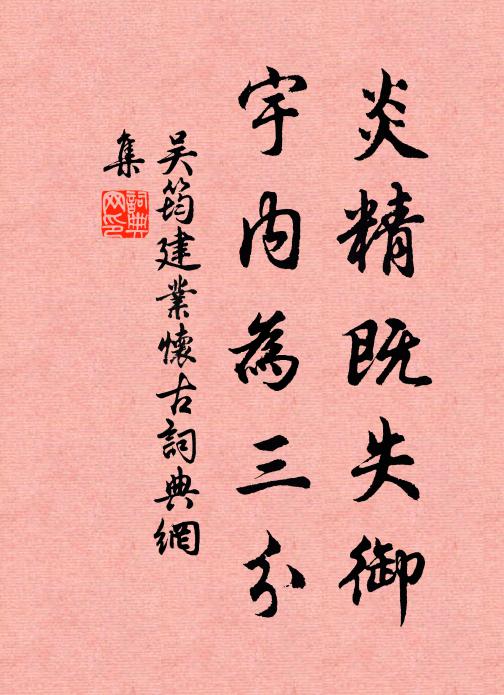 炎精既失御
宇内為三分
吳筠建業懷古詞典網
集
詞典网印